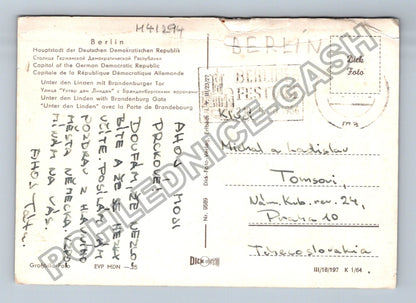 M412594
Berlin
Hauptstadt der Deutschen Demokratischen Republik
Столица Германской Демократической Республики
Capital of the German Democratic Republic
Capitale de la République Démocratique Allemande
Unter den Linden mit Brandenburger Tor
Улица "Унтер ден Линден" с Бранденбургскими воротами
Unter den Linden with Brandenburg Gate
"Unter den Linden" avec la Porte de Brandebourg
BERLIN
BERLI
FEST
Dick
Foto
AHOJ HOSI
PRCKOVÉ!
DOUFÁM, ŽE NEZLO
BÍTE A ŽE SE HEZKY
UČÍTE. POSÍLÁM VÁM
POZDRAV Z HLAVNÍHO
MĚSTA NĚMECKA. VZPO
MÍNÁM NA VÁS.
AHOJ
Michal a Ladislav
Tomsovi,
Nám. Kub. rev. 24,
Praha 10
Tchecoslovakia
Nr. 9089
EVP MDN
III/18/197 K 1/64
POHLEDNICE-GASH